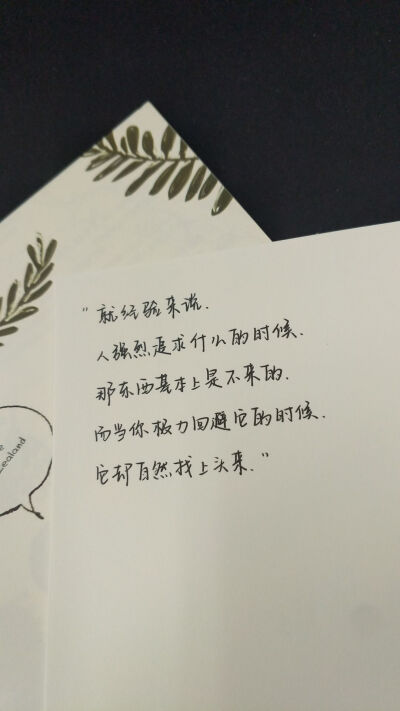 "就经验来说.
人强烈追求什么的时候.
那东西基本上是不来的.
而当你极力回避它的时候.
它却自然找上头来."
ealand